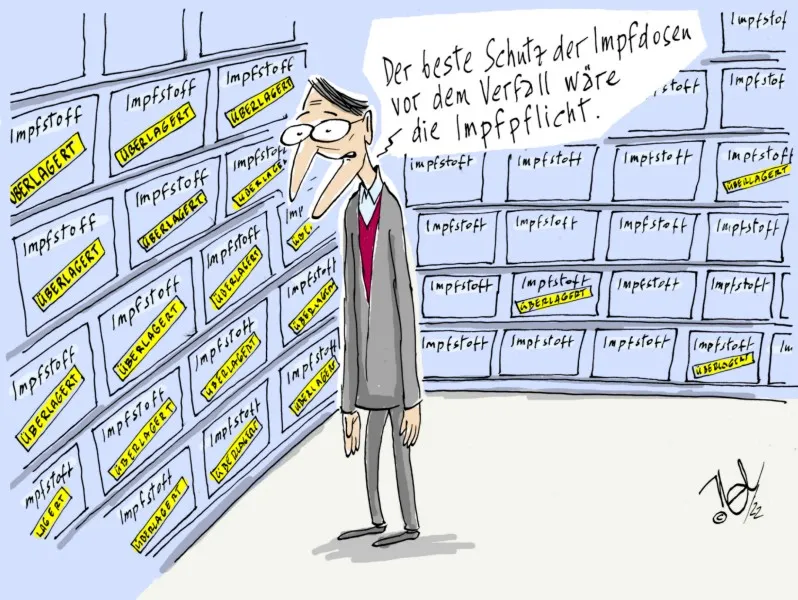 Der beste Schutz der Impfdosen
vor dem Verfall wäre
die Impfpflicht.
Impfstoff
ÜBERLAGERT
Impfstoff
ÜBERLAGERT
Impfstoff
ÜBERLAGERT
Impfstoff
ÜBERLAGERT
Impfstoff
ÜBERLAGERT
Impfstoff
ÜBERLAGE
Impfstoff
ÜBERLAGERT
Impfstoff
ÜBERLAGERT
Impfstoff
ÜBERLAGERT
Imp
Impfstoff
ÜBERLAGERT
Impfstoff
ÜBERLAGERT
Impfstoff
ÜBERLAGERT
mpfstoff
LAGERT
Impfstoff
ÜBERLAGERT
Impfstoff
ÜBERLAGERT
Impfstoff
ÜBERLAGERT
Impfstoff
Impfstoff
stoff
Impfstoff
Impfstoff
Impfstoff
Impfstoff
ÜBERLAGERT
Impfstoff
Impfstoff
Impfstoff
Impfstoff
Impfstoff
Impfstoff
ÜBERLAGERT
Impfstoff
Impfstoff
Impfstoff
Impfstoff
Impfstoff
Impfstoff
ÜBERLAGERT
I
© /22